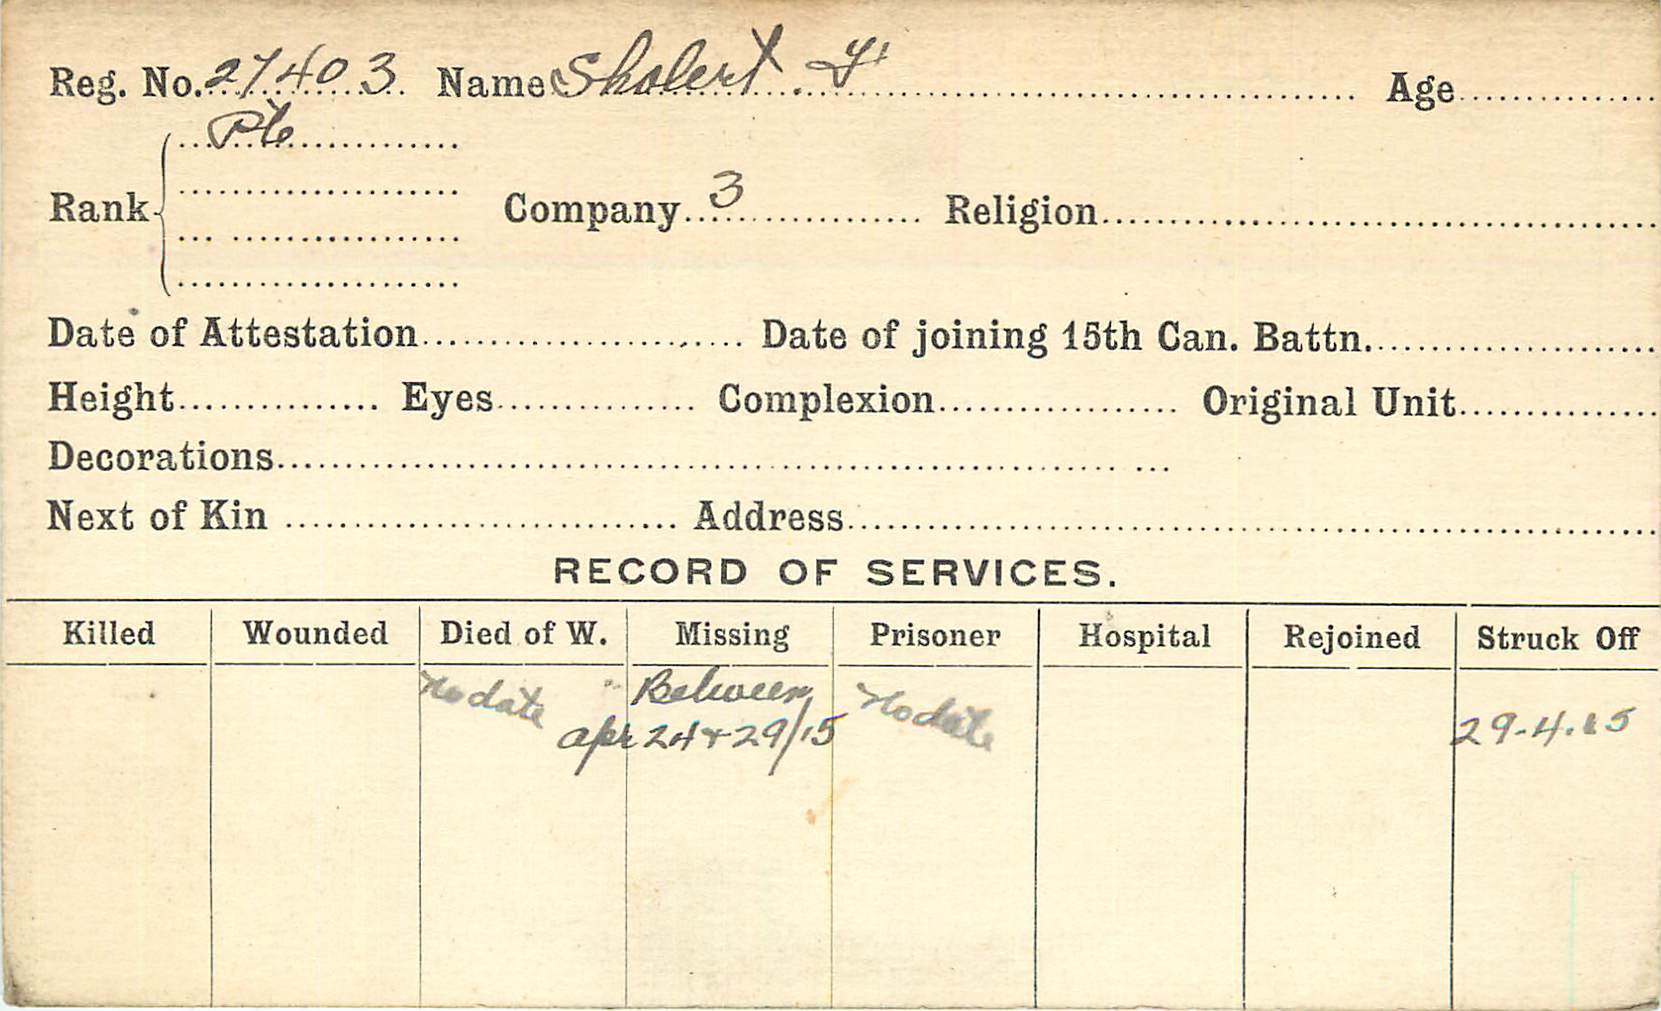 Reg. No. 27403 Name Skolert. F Age
Pte
Rank Company 3 Religion
Date of Attestation Date of joining 15th Can. Battn.
Height Eyes Complexion Original Unit
Decorations
Next of Kin Address
RECORD OF SERVICES.
Killed Wounded Died of W. Missing Prisoner Hospital Rejoined Struck Off
No date Between No date
apr 24 & 29/15 29-4.15